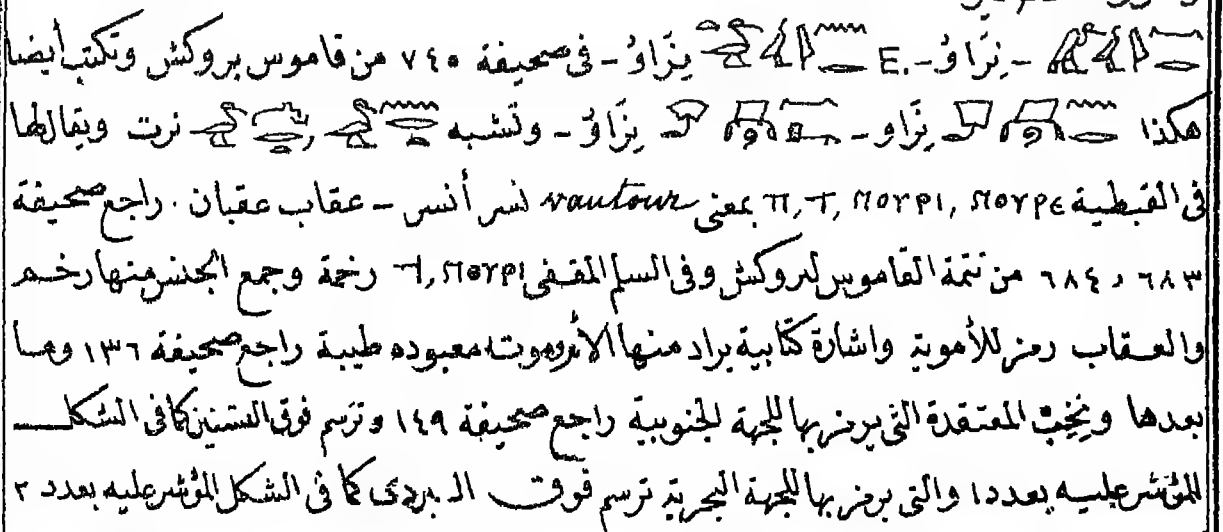 - نِرَاوُ - .E نِرَاوُ - فى صحيفة ٧٤٥ من قاموس بروكش وتكتب أيضا
هكذا نِرَاو - نِرَاوُ - وتشبه , نرت ويقال لها
فى القبطية ⲡ, ⲧ, ⲛⲟⲩⲣⲓ, ⲛⲟⲩⲣⲉ بمعنى vautour نسر أنسر - عقاب عقبان . راجع صحيفة
٦٨٣ و ٦٨٤ من تتمة القاموس لبروكش وفى السلم المقفى ϯ, ⲛⲟⲩⲣⲓ رخمة وجمع الجنس منها رخم
والعقاب رمز للأموية واشارة كتابية يراد منها الأم وموت معبوده طيبة راجع صحيفة ١٣٦ وما
بعدها ونخب المعتقدة التى يرمز بها للجهة الجنوبية راجع صحيفة ١٤٩ وترسم فوق كما فى الشكل
المؤشر عليه بعدد ١ والتى يرمز بها للجهة البحرية ترسم فوق البردى كما فى الشكل المؤشر عليه بعدد ٢